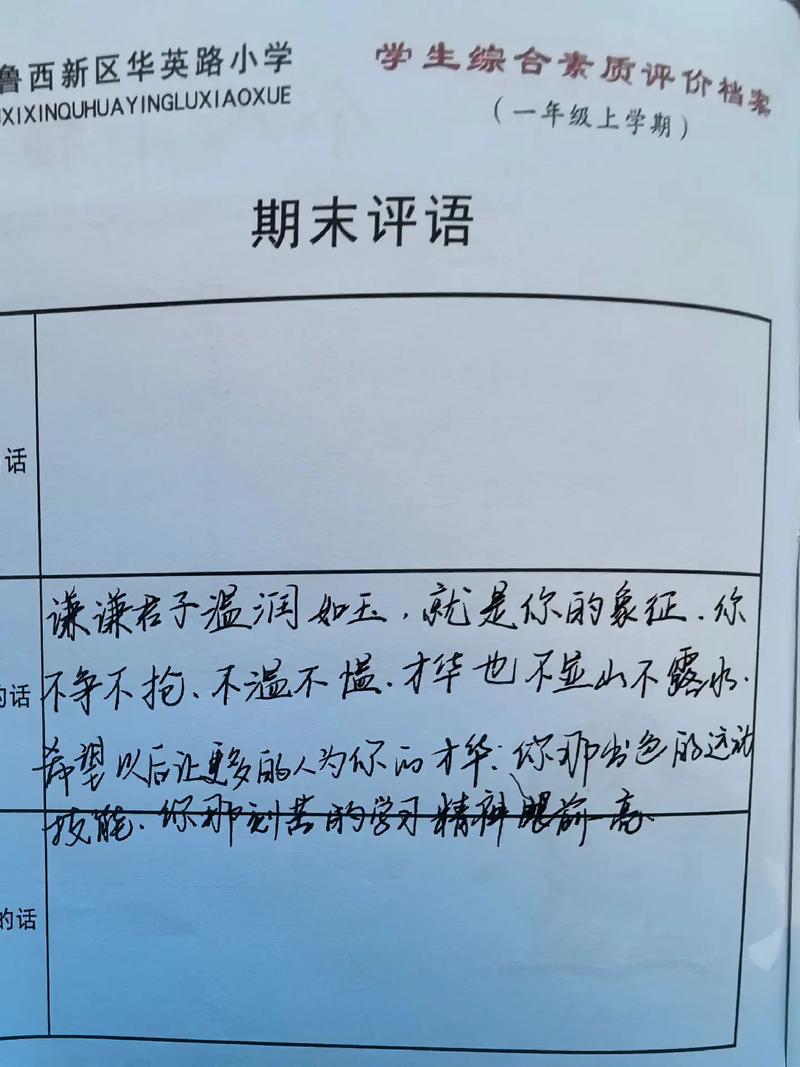 鲁西新区华英路小学
XIXINQUHUAYINGLUXIAOXUE
学生综合素质评价档案
(一年级上学期)
期末评语
话
谦谦君子温润如玉，就是你的象征.你
的话
不争不抢、不温不愠.才华也不显山不露水.
希望以后让更多的人为你的才华:你那出色的运动
技能.你那刻苦的学习精神眼前一亮.
的话